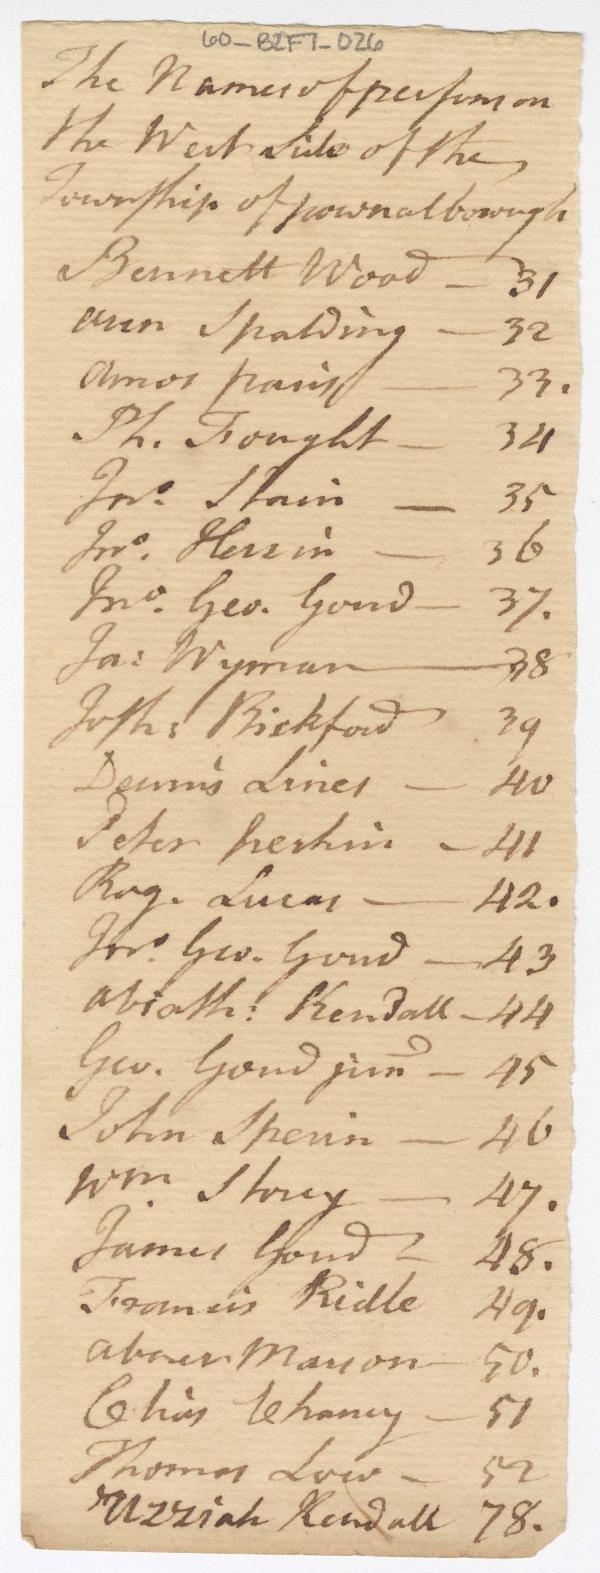 60-B2F7-026
The Names of persons on
the West Side of the
Township of pownalborough
Bennett Wood — 31
aven Spalding — 32
amos paris — 33.
Ph. Fought — 34
Jno. Stain — 35
Jno. Herrin — 36
Jno. Geo. Goud — 37.
Ja: Wyman — 38
Josh: Bickford 39
Dennis Lines — 40
Peter — 41
Rog. Lucas — 42.
Jno. Geo. Goud — 43
abiath: Kendall — 44
Geo. Goud junr — 45
John Sperin — 46
Wm. Story — 47.
James Goud — 48.
Francis Ridle 49.
abner Marson — 50.
Elias Chaney — 51
Thomas Low — 52
Uzziah Kendall 78.